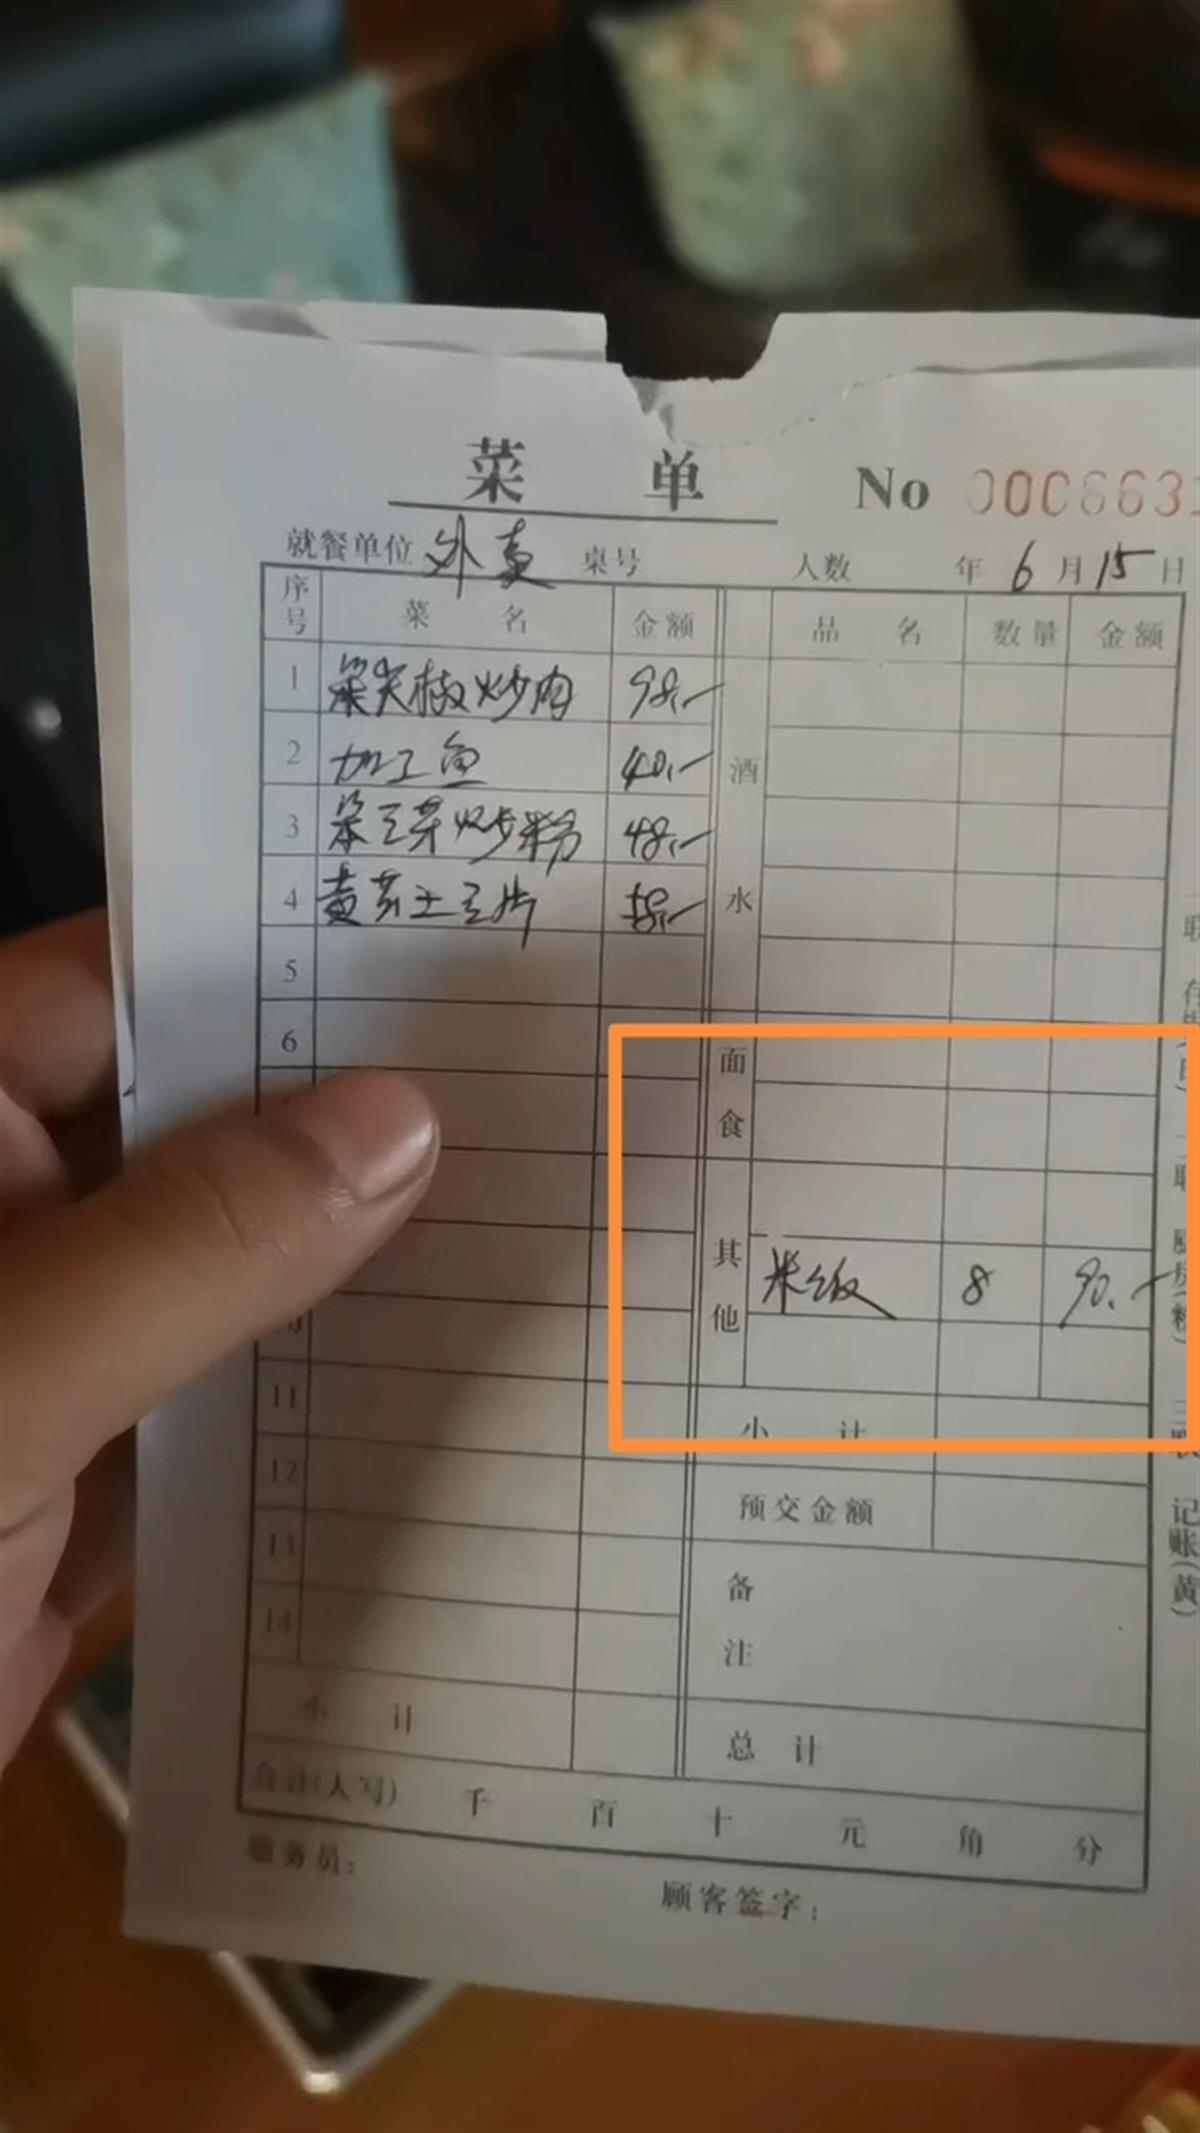 菜 单 No 0006631
就餐单位 外卖 桌号 人数 年 6 月 15 日
序号 菜 名 金额 品 名 数量 金额
1 笨尖椒炒肉 98.-
2 加工鱼 40.-
3 笨豆芽炒粉 48.-
4 黄芪土豆片
5
6
11
12
13
14
小 计
酒水
面食
其他
米饭 8 90.-
小 计
预交金额
备注
总 计
合计(大写) 千 百 十 元 角 分
服务员:
顾客签字:
三联 记账(黄)